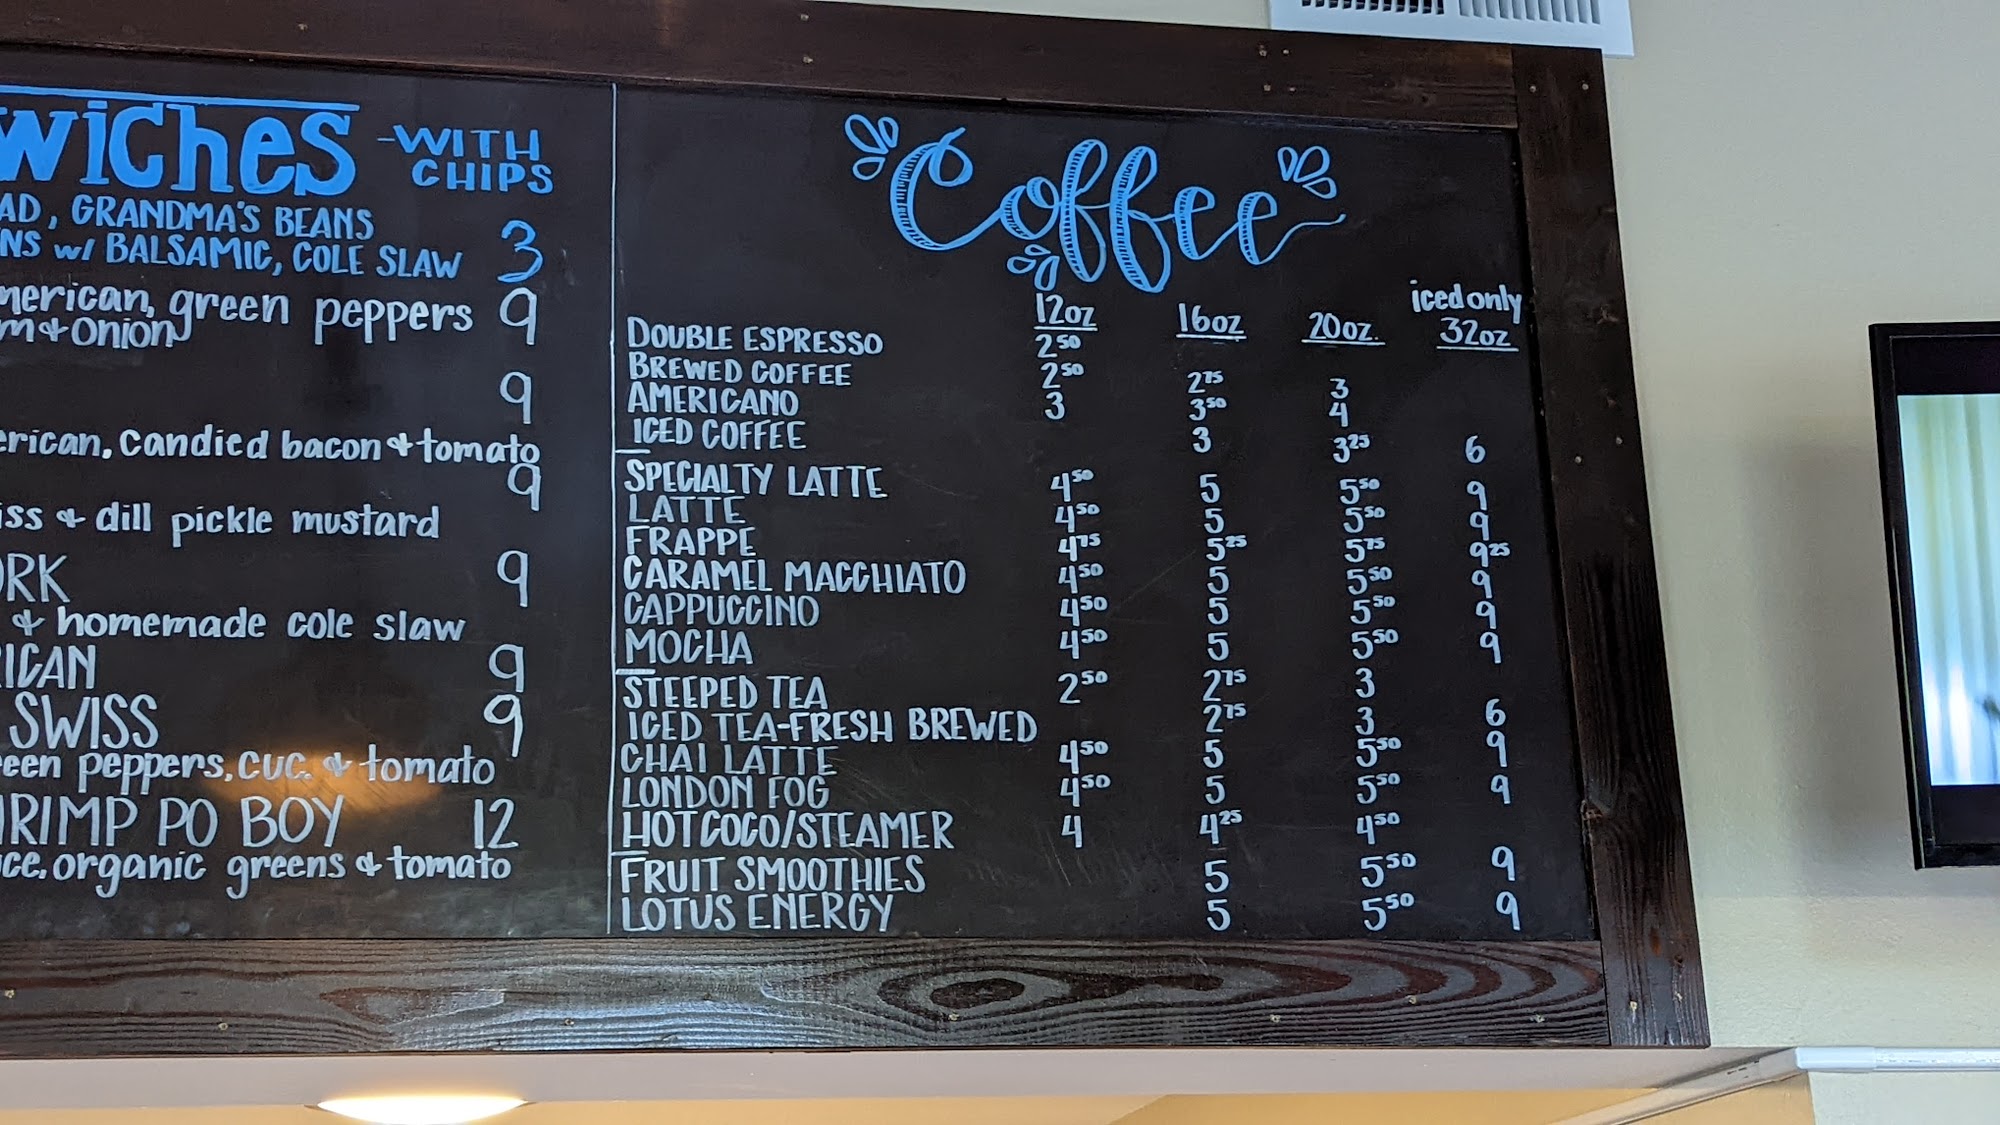 wiches -WITH CHIPS
AD, GRANDMA'S BEANS
NS w/ BALSAMIC, COLE SLAW 3
merican, green peppers 9
m & Onion
9
erican, candied bacon & tomato
9
iss & dill pickle mustard
ORK 9
& homemade cole slaw
ICAN 9
SWISS 9
een peppers, cuc. & tomato
HRIMP PO BOY 12
ce, organic greens & tomato
Coffee
12oz 16oz 20oz. iced only 32oz
DOUBLE ESPRESSO 2⁵⁰
BREWED COFFEE 2⁵⁰ 2⁷⁵ 3
AMERICANO 3 3⁵⁰ 4
ICED COFFEE 3 3²⁵ 6
SPECIALTY LATTE 4⁵⁰ 5 5⁵⁰ 9
LATTE 4⁵⁰ 5 5⁵⁰ 9
FRAPPE 4⁷⁵ 5²⁵ 5⁷⁵ 9²⁵
CARAMEL MACCHIATO 4⁵⁰ 5 5⁵⁰ 9
CAPPUCCINO 4⁵⁰ 5 5⁵⁰ 9
MOCHA 4⁵⁰ 5 5⁵⁰ 9
STEEPED TEA 2⁵⁰ 2⁷⁵ 3
ICED TEA-FRESH BREWED 2⁷⁵ 3 6
CHAI LATTE 4⁵⁰ 5 5⁵⁰ 9
LONDON FOG 4⁵⁰ 5 5⁵⁰ 9
HOT COCO/STEAMER 4 4²⁵ 4⁵⁰
FRUIT SMOOTHIES 5 5⁵⁰ 9
LOTUS ENERGY 5 5⁵⁰ 9